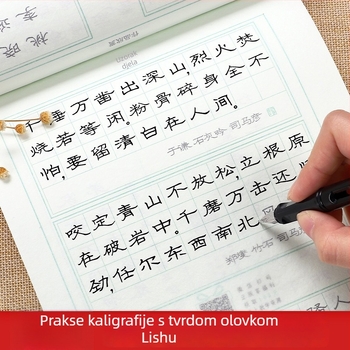 作品欣赏
uzorak
djela
千锤万凿出深山,烈火焚
烧若等闲。粉骨碎身全不
怕,要留清白在人间。
于谦 石灰吟 司马彦
咬定青山不放松,立根原
在破岩中。千磨万击还
劲,任尔东西南北
郑燮 竹石 司马
Prakse kaligrafije s tvrdom olovkom
Lishu